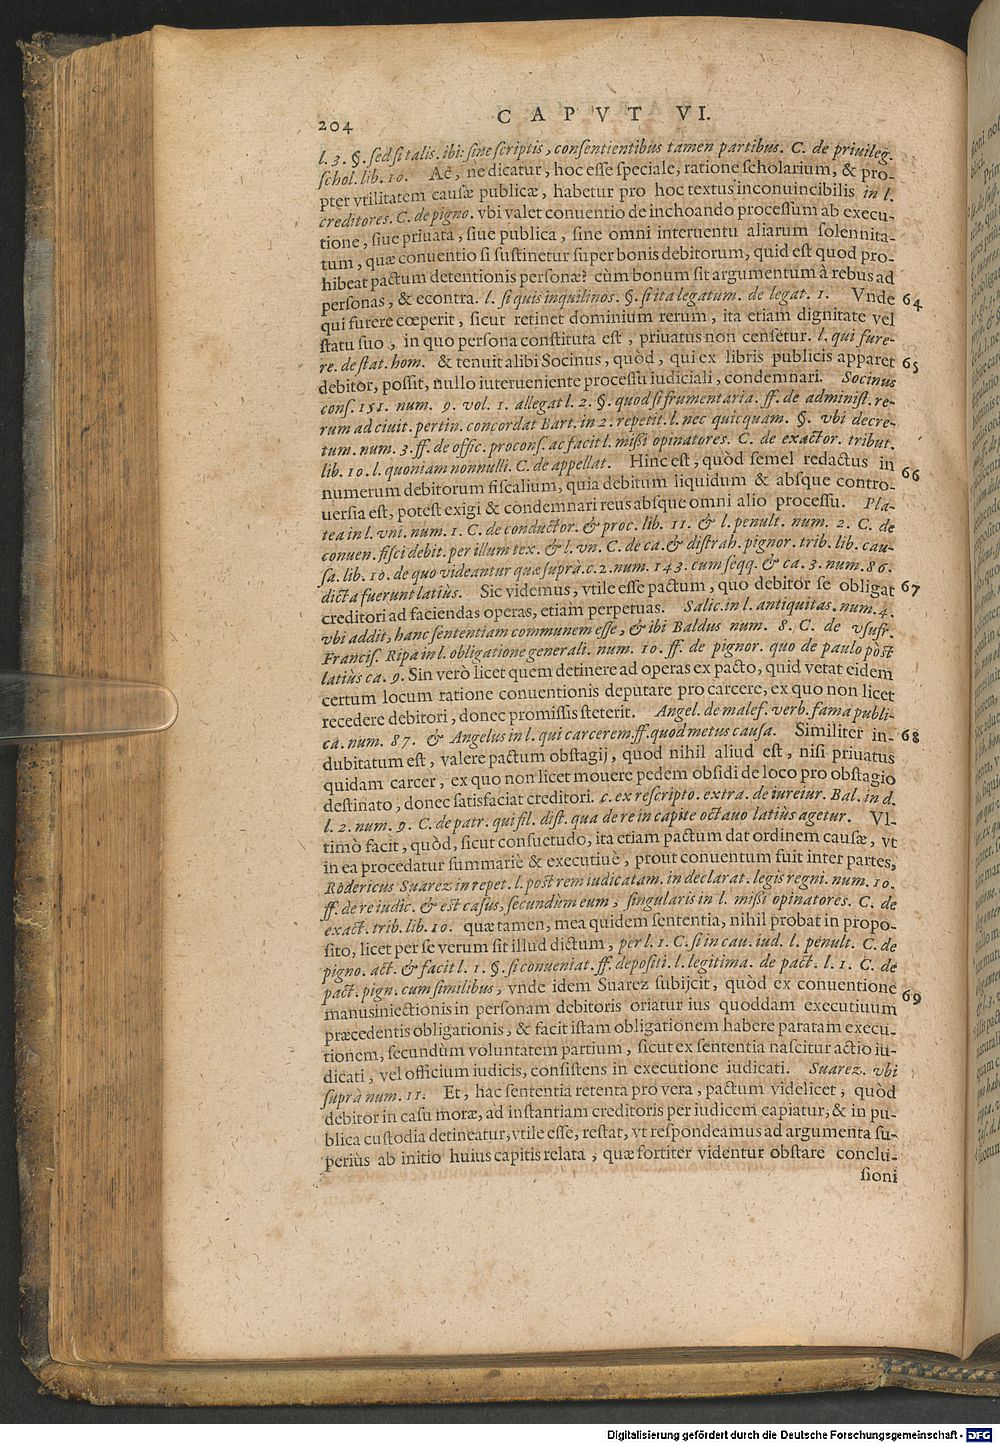 204 CAPVT VI.
l. 3. §. sed si talis. ibi: sine scriptis, consentientibus tamen partibus. C. de priuileg.
schol. lib. 10. Ac, ne dicatur, hoc esse speciale, ratione scholarium, & pro-
pter vtilitatem causæ publicæ, habetur pro hoc textus inconuincibilis in l.
creditores. C. de pigno. vbi valet conuentio de inchoando processum ab execu-
tione, siue priuata, siue publica, sine omni interuentu aliarum solennita-
tum, quæ conuentio si sustinetur super bonis debitorum, quid est quod pro-
hibeat pactum detentionis personæ? cùm bonum sit argumentum à rebus ad
personas, & econtra. l. si quis inquilinos. §. si ita legatum. de legat. 1. Vnde 64
qui furere cœperit, sicut retinet dominium rerum, ita etiam dignitate vel
statu suo, in quo persona constituta est, priuatus non censetur. l. qui fure-
re. de stat. hom. & tenuit alibi Socinus, quòd, qui ex libris publicis apparet 65
debitor, possit, nullo iuterueniente processu iudiciali, condemnari. Socinus
cons. 151. num. 9. vol. 1. allegat l. 2. §. quod si frumentaria. ff. de administ. re-
rum ad ciuit. pertin. concordat Bart. in 2. repetit. l. nec quicquam. §. vbi decre-
tum. num. 3. ff. de offic. procons. ac facit l. missi opinatores. C. de exactor. tribut.
lib. 10. l. quoniam nonnulli. C. de appellat. Hinc est, quòd semel redactus in 66
numerum debitorum fiscalium, quia debitum liquidum & absque contro-
uersia est, potest exigi & condemnari reus absque omni alio processu. Pla-
tea in l. vni. num. 1. C. de conductor. & proc. lib. 11. & l. penult. num. 2. C. de
conuen. fisci debit. per illum tex. & l. vn. C. de ca. & distrah. pignor. trib. lib. cau-
sa. lib. 10. de quo videantur quæ suprà. c. 2. num. 143. cum seqq. & ca. 3. num. 86.
dicta fuerunt latius. Sic videmus, vtile esse pactum, quo debitor se obligat 67
creditori ad faciendas operas, etiam perpetuas. Salic. in l. antiquitas. num. 4.
vbi addit, hanc sententiam communem esse, & ibi Baldus num. 8. C. de vsufr.
Francis. Ripa in l. obligatione generali. num. 10. ff. de pignor. quo de paulo pòst
latiùs ca. 9. Sin verò licet quem detinere ad operas ex pacto, quid vetat eidem
certum locum ratione conuentionis deputare pro carcere, ex quo non licet
recedere debitori, donec promissis steterit. Angel. de malef. verb. fama publi-
ca. num. 87. & Angelus in l. qui carcerem. ff. quod metus causa. Similiter in- 68
dubitatum est, valere pactum obstagij, quod nihil aliud est, nisi priuatus
quidam carcer, ex quo non licet mouere pedem obsidi de loco pro obstagio
destinato, donec satisfaciat creditori. c. ex rescripto. extra. de iureiur. Bal. in d.
l. 2. num. 9. C. de patr. qui fil. dist. qua de re in capite octauo latiùs agetur. Vl-
timò facit, quòd, sicut consuetudo, ita etiam pactum dat ordinem causæ, vt
in ea procedatur summariè & executiuè, prout conuentum fuit inter partes,
Rodericus Suarez in repet. l. post rem iudicatam. in declarat. legis regni. num. 10.
ff. de re iudic. & est casus, secundùm eum, singularis in l. missi opinatores. C. de
exact. trib. lib. 10. quæ tamen, mea quidem sententia, nihil probat in propo-
sito, licet per se verum sit illud dictum, per l. 1. C. si in cau. iud. l. penult. C. de
pigno. act. & facit l. 1. §. si conueniat. ff. depositi. l. legitima. de pact. l. 1. C. de
pact. pign. cum similibus, vnde idem Suarez subijcit, quòd ex conuentione 69
manusiniectionis in personam debitoris oriatur ius quoddam executiuum
præcedentis obligationis, & facit istam obligationem habere paratam execu-
tionem, secundùm voluntatem partium, sicut ex sententia nascitur actio iu-
dicati, vel officium iudicis, consistens in executione iudicati. Suarez. vbi
suprà num. 11. Et, hac sententia retenta pro vera, pactum videlicet, quòd
debitor in casu moræ, ad instantiam creditoris per iudicem capiatur, & in pu-
blica custodia detineatur, vtile esse, restat, vt respondeamus ad argumenta su-
periùs ab initio huius capitis relata, quæ fortiter videntur obstare conclu-
sioni
Digitalisierung gefördert durch die Deutsche Forschungsgemeinschaft - DFG